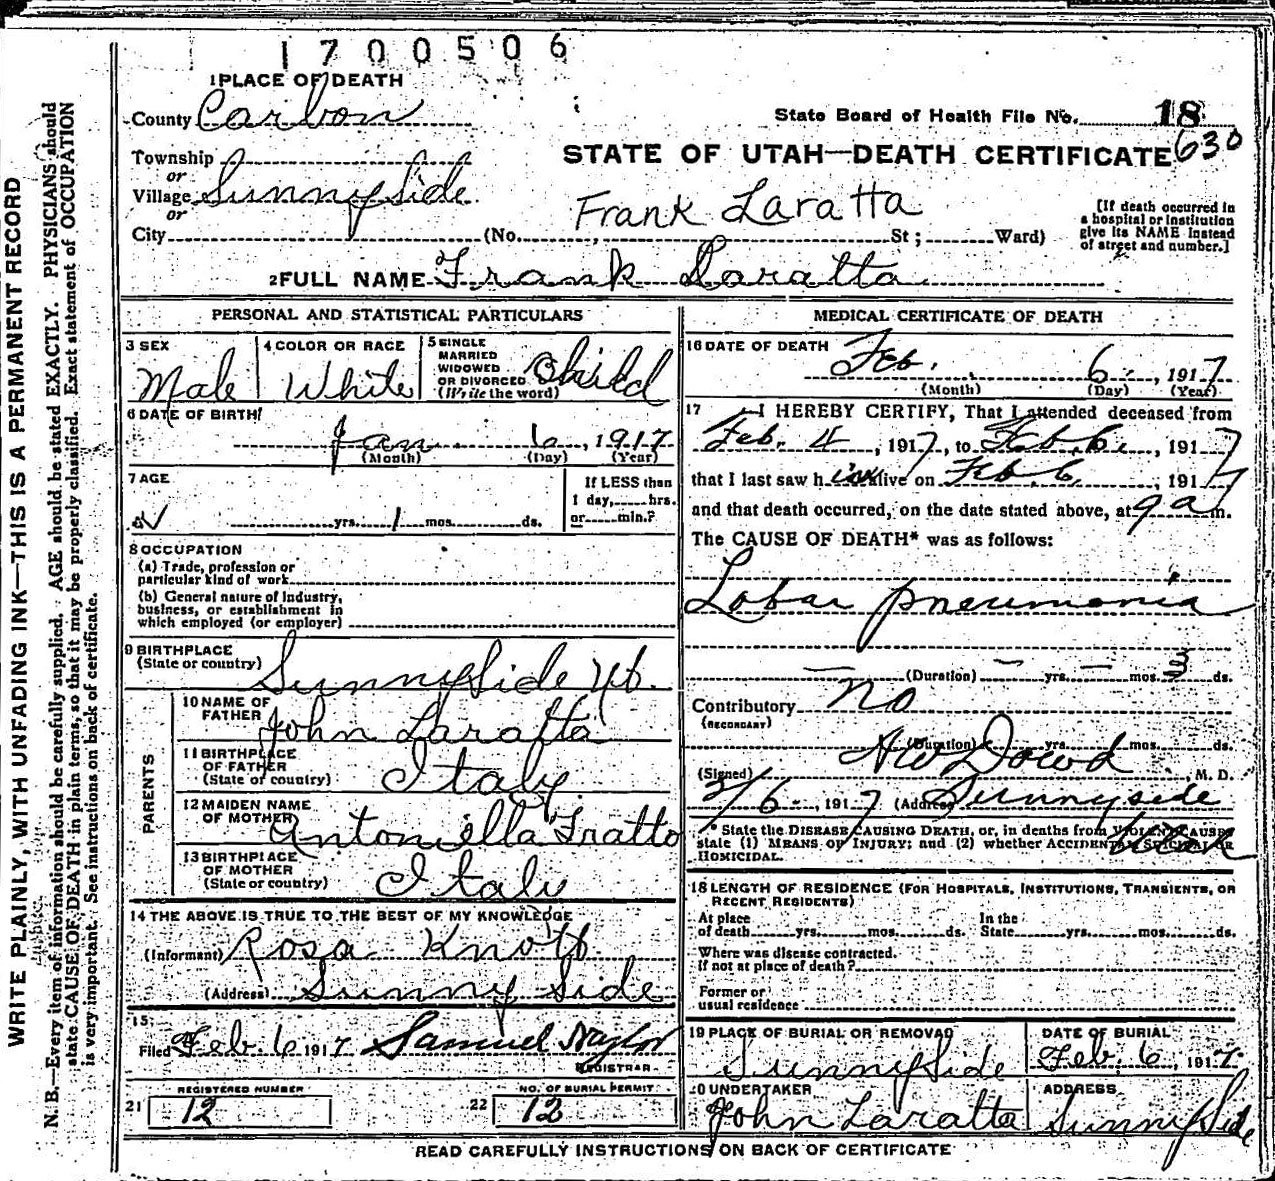 1700506
1 PLACE OF DEATH
County Carbon
State Board of Health File No. 18
630
Township
or
Village Sunnyside
or
STATE OF UTAH—DEATH CERTIFICATE
Frank Laratta
City (No. St; Ward)
[If death occurred in
a hospital or institution
give its NAME instead
of street and number.]
2 FULL NAME Frank Laratta
PERSONAL AND STATISTICAL PARTICULARS
3 SEX
Male
4 COLOR OR RACE
White
5 SINGLE
MARRIED
WIDOWED
OR DIVORCED
(Write the word)
Child
6 DATE OF BIRTH
Jan 6, 1917
(Month) (Day) (Year)
7 AGE
yrs. 1 mos. ds.
If LESS than
1 day, hrs.
or min.?
8 OCCUPATION
(a) Trade, profession or
particular kind of work
(b) General nature of industry,
business, or establishment in
which employed (or employer)
9 BIRTHPLACE
(State or country)
Sunnyside Ut.
PARENTS
10 NAME OF
FATHER
John Laratta
11 BIRTHPLACE
OF FATHER
(State or country)
Italy
12 MAIDEN NAME
OF MOTHER
Antoniella Fratto
13 BIRTHPLACE
OF MOTHER
(State or country)
Italy
14 THE ABOVE IS TRUE TO THE BEST OF MY KNOWLEDGE
(Informant) Rosa Knott
(Address) Sunny Side
15
Filed Feb. 6 1917 Samuel Naylor
REGISTRAR
REGISTERED NUMBER
21 12
NO. OF BURIAL PERMIT
22 12
MEDICAL CERTIFICATE OF DEATH
16 DATE OF DEATH
Feb. 6, 1917
(Month) (Day) (Year)
17 I HEREBY CERTIFY, That I attended deceased from
Feb. 4, 1917, to Feb. 6, 1917
that I last saw him alive on Feb 6, 1917
and that death occurred, on the date stated above, at 9 a m.
The CAUSE OF DEATH* was as follows:
Lobar pneumonia
(Duration) — yrs. — mos. 3 ds.
Contributory no
(SECONDARY)
(Duration) yrs. mos. ds.
(Signed) AW Dowd, M. D.
2/6-, 1917 (Address) Sunnyside
* State the DISEASE CAUSING DEATH, or, in deaths from VIOLENT CAUSES
state (1) MEANS OF INJURY; and (2) whether ACCIDENTAL, SUICIDAL OR
HOMICIDAL.
18 LENGTH OF RESIDENCE (FOR HOSPITALS, INSTITUTIONS, TRANSIENTS, OR
RECENT RESIDENTS)
At place
of death yrs. mos. ds.
In the
State yrs. mos. ds.
Where was disease contracted.
If not at place of death?
Former or
usual residence
19 PLACE OF BURIAL OR REMOVAL
Sunnyside
DATE OF BURIAL
Feb. 6, 1917
20 UNDERTAKER
John Laratta
ADDRESS
Sunnyside
READ CAREFULLY INSTRUCTIONS ON BACK OF CERTIFICATE
WRITE PLAINLY, WITH UNFADING INK—THIS IS A PERMANENT RECORD
N. B.—Every item of information should be carefully supplied. AGE should be stated EXACTLY. PHYSICIANS should
state CAUSE OF DEATH in plain terms, so that it may be properly classified. Exact statement of OCCUPATION
is very important. See instructions on back of certificate.